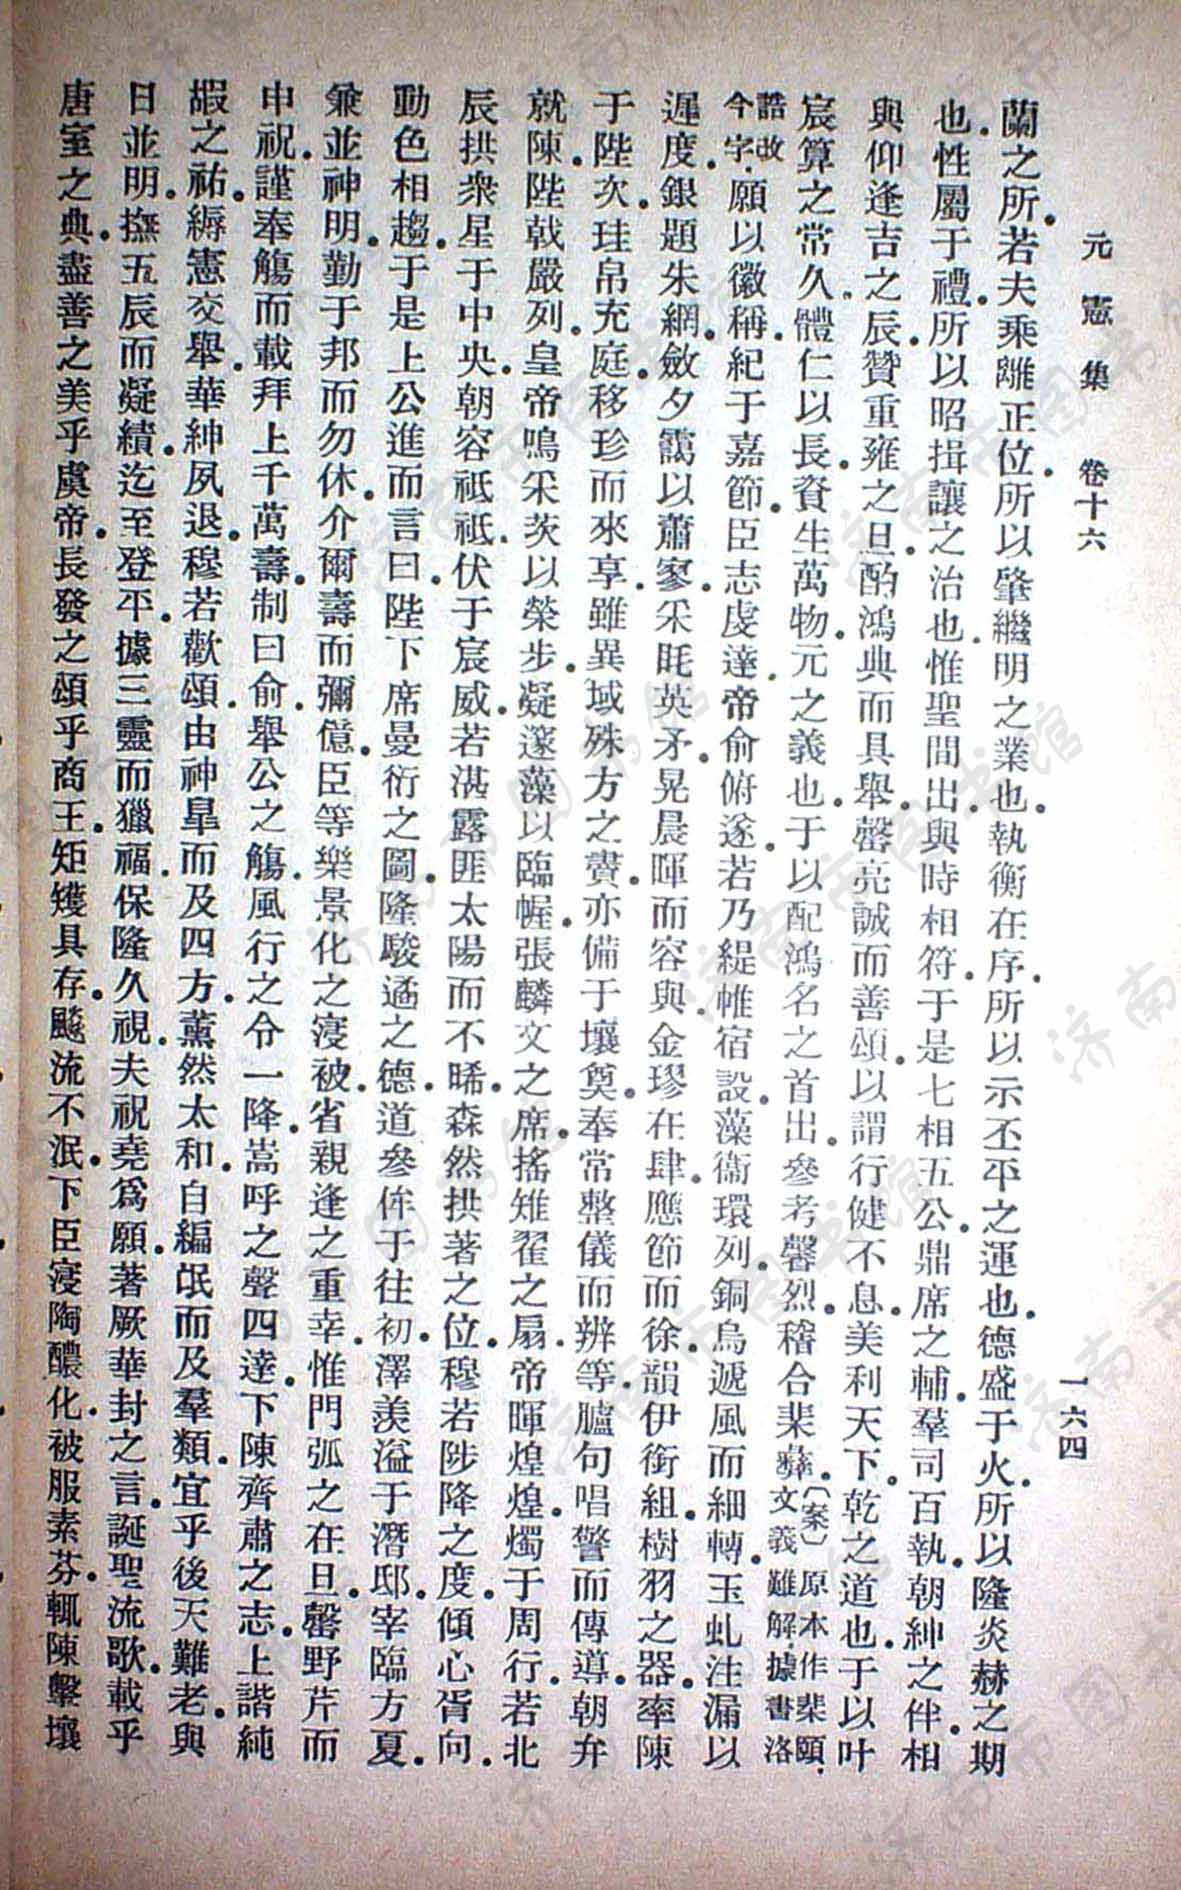 元憲集　卷十六　一六四
蘭之所。若夫乘離正位。所以肇繼明之業也。執衡在序。所以示丕平之運也。德盛于火。所以隆炎赫之期
也。性屬于禮。所以昭揖讓之治也。惟聖間出。與時相符。于是七相五公。鼎席之輔。羣司百執。朝紳之伴。相
與仰逢吉之辰。贊重雍之旦。酌鴻典而具舉。罄亮誠而善頌。以謂行健不息。美利天下。乾之道也。于以叶
宸算之常久。體仁以長。資生萬物。元之義也。于以配鴻名之首出。參考馨烈。稽合棐彝。〔案〕原本作棐頤。文義難解。據書洛
誥改今字。願以徽稱。紀于嘉節。臣志虔達。帝俞俯遂。若乃緹帷宿設。藻衞環列。銅烏遞風而細轉。玉虬注漏以
遲度。銀題朱網。斂夕靄以蕭寥。采旄英矛。晃晨暉而容與。金璆在肆。應節而徐韻。伊銜組樹羽之器。率陳
于陛次。珪帛充庭。移珍而來享。雖異域殊方之賮。亦備于壤奠。奉常整儀而辨等。臚句唱警而傳導。朝弁
就陳。陛戟嚴列。皇帝鳴采茨以榮步。凝邃藻以臨幄。張麟文之席。搖雉翟之扇。帝暉煌煌。燭于周行。若北
辰拱衆星于中央。朝容祗祗。伏于宸威。若湛露匪太陽而不晞。森然拱著之位。穆若陟降之度。傾心胥向。
動色相趨。于是上公進而言曰。陛下席曼衍之圖。隆駿遹之德。道參侔于往初。澤羨溢于潛邸。宰臨方夏。
兼並神明。勤于邦而勿休。介爾壽而彌億。臣等樂景化之寖被。省親逢之重幸。惟門弧之在旦。罄野芹而
申祝。謹奉觴而載拜。上千萬壽。制曰俞。舉公之觴。風行之令一降。嵩呼之聲四達。下陳齊肅之志。上諧純
嘏之祐。縟憲交舉。華紳夙退。穆若歡頌。由神皐而及四方。薰然太和。自編氓而及羣類。宜乎後天難老。與
日並明。撫五辰而凝績。迄至登平。據三靈而獵福。保隆久視。夫祝堯爲願。著厥華封之言。誕聖流歌。載乎
唐室之典。盡善之美乎虞帝。長發之頌乎商王。矩矱具存。飈流不泯。下臣寖陶醲化。被服素芬。輒陳擊壤